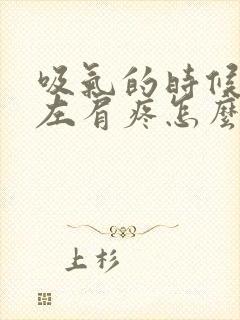 吸氣的時候
左肩疼怎麼
上杉